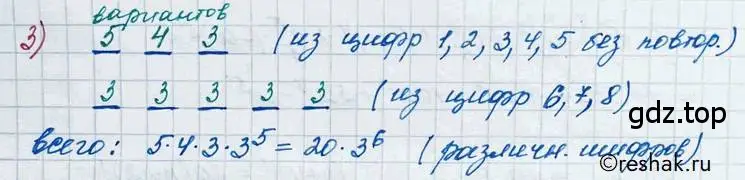 вариантов
3) 5 4 3 (из цифр 1, 2, 3, 4, 5 без повтор.)
3 3 3 3 3 (из цифр 6, 7, 8)
gdz.top
всего: 5·4·3·3⁵ = 20·3⁶ (различн. шифров)
©reshak.ru